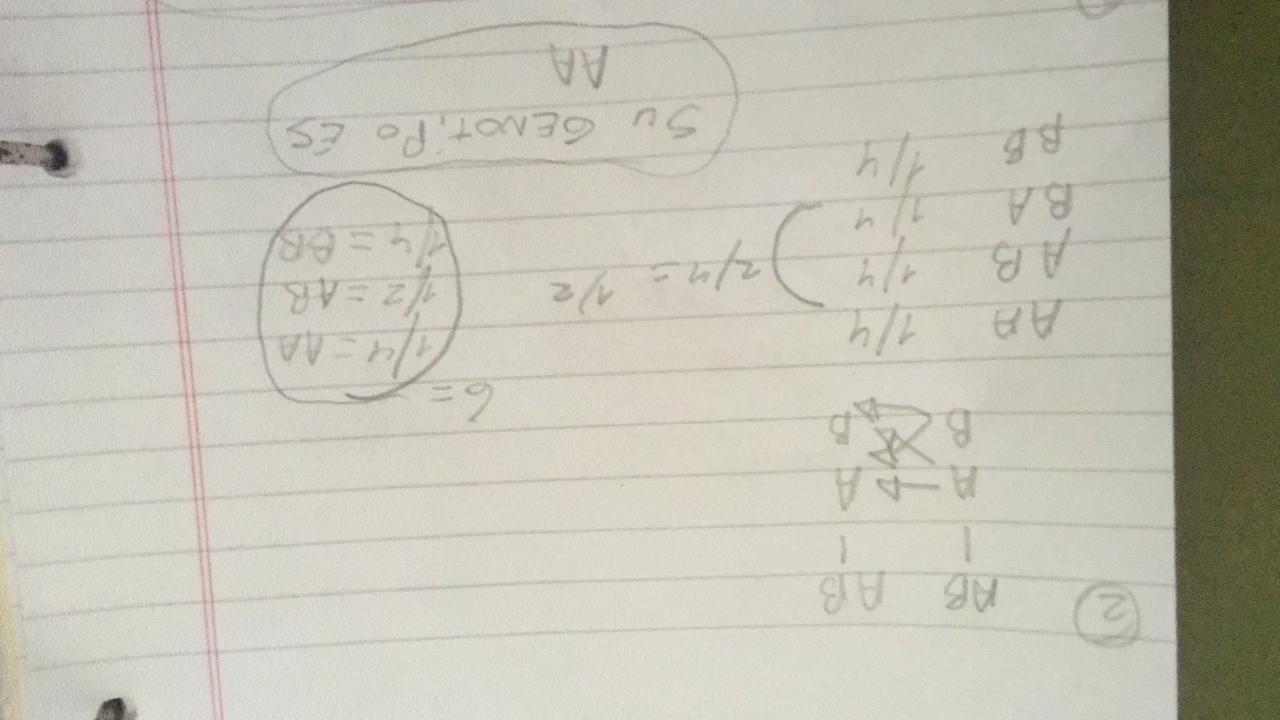 ②
AB AB
| |
A → A
B B
G =
AA 1/4
AB 1/4
BA 1/4
BB 1/4
2/4 = 1/2
1/4 = AA
1/2 = AB
1/4 = BB
SU GENOTIPO ES
AA